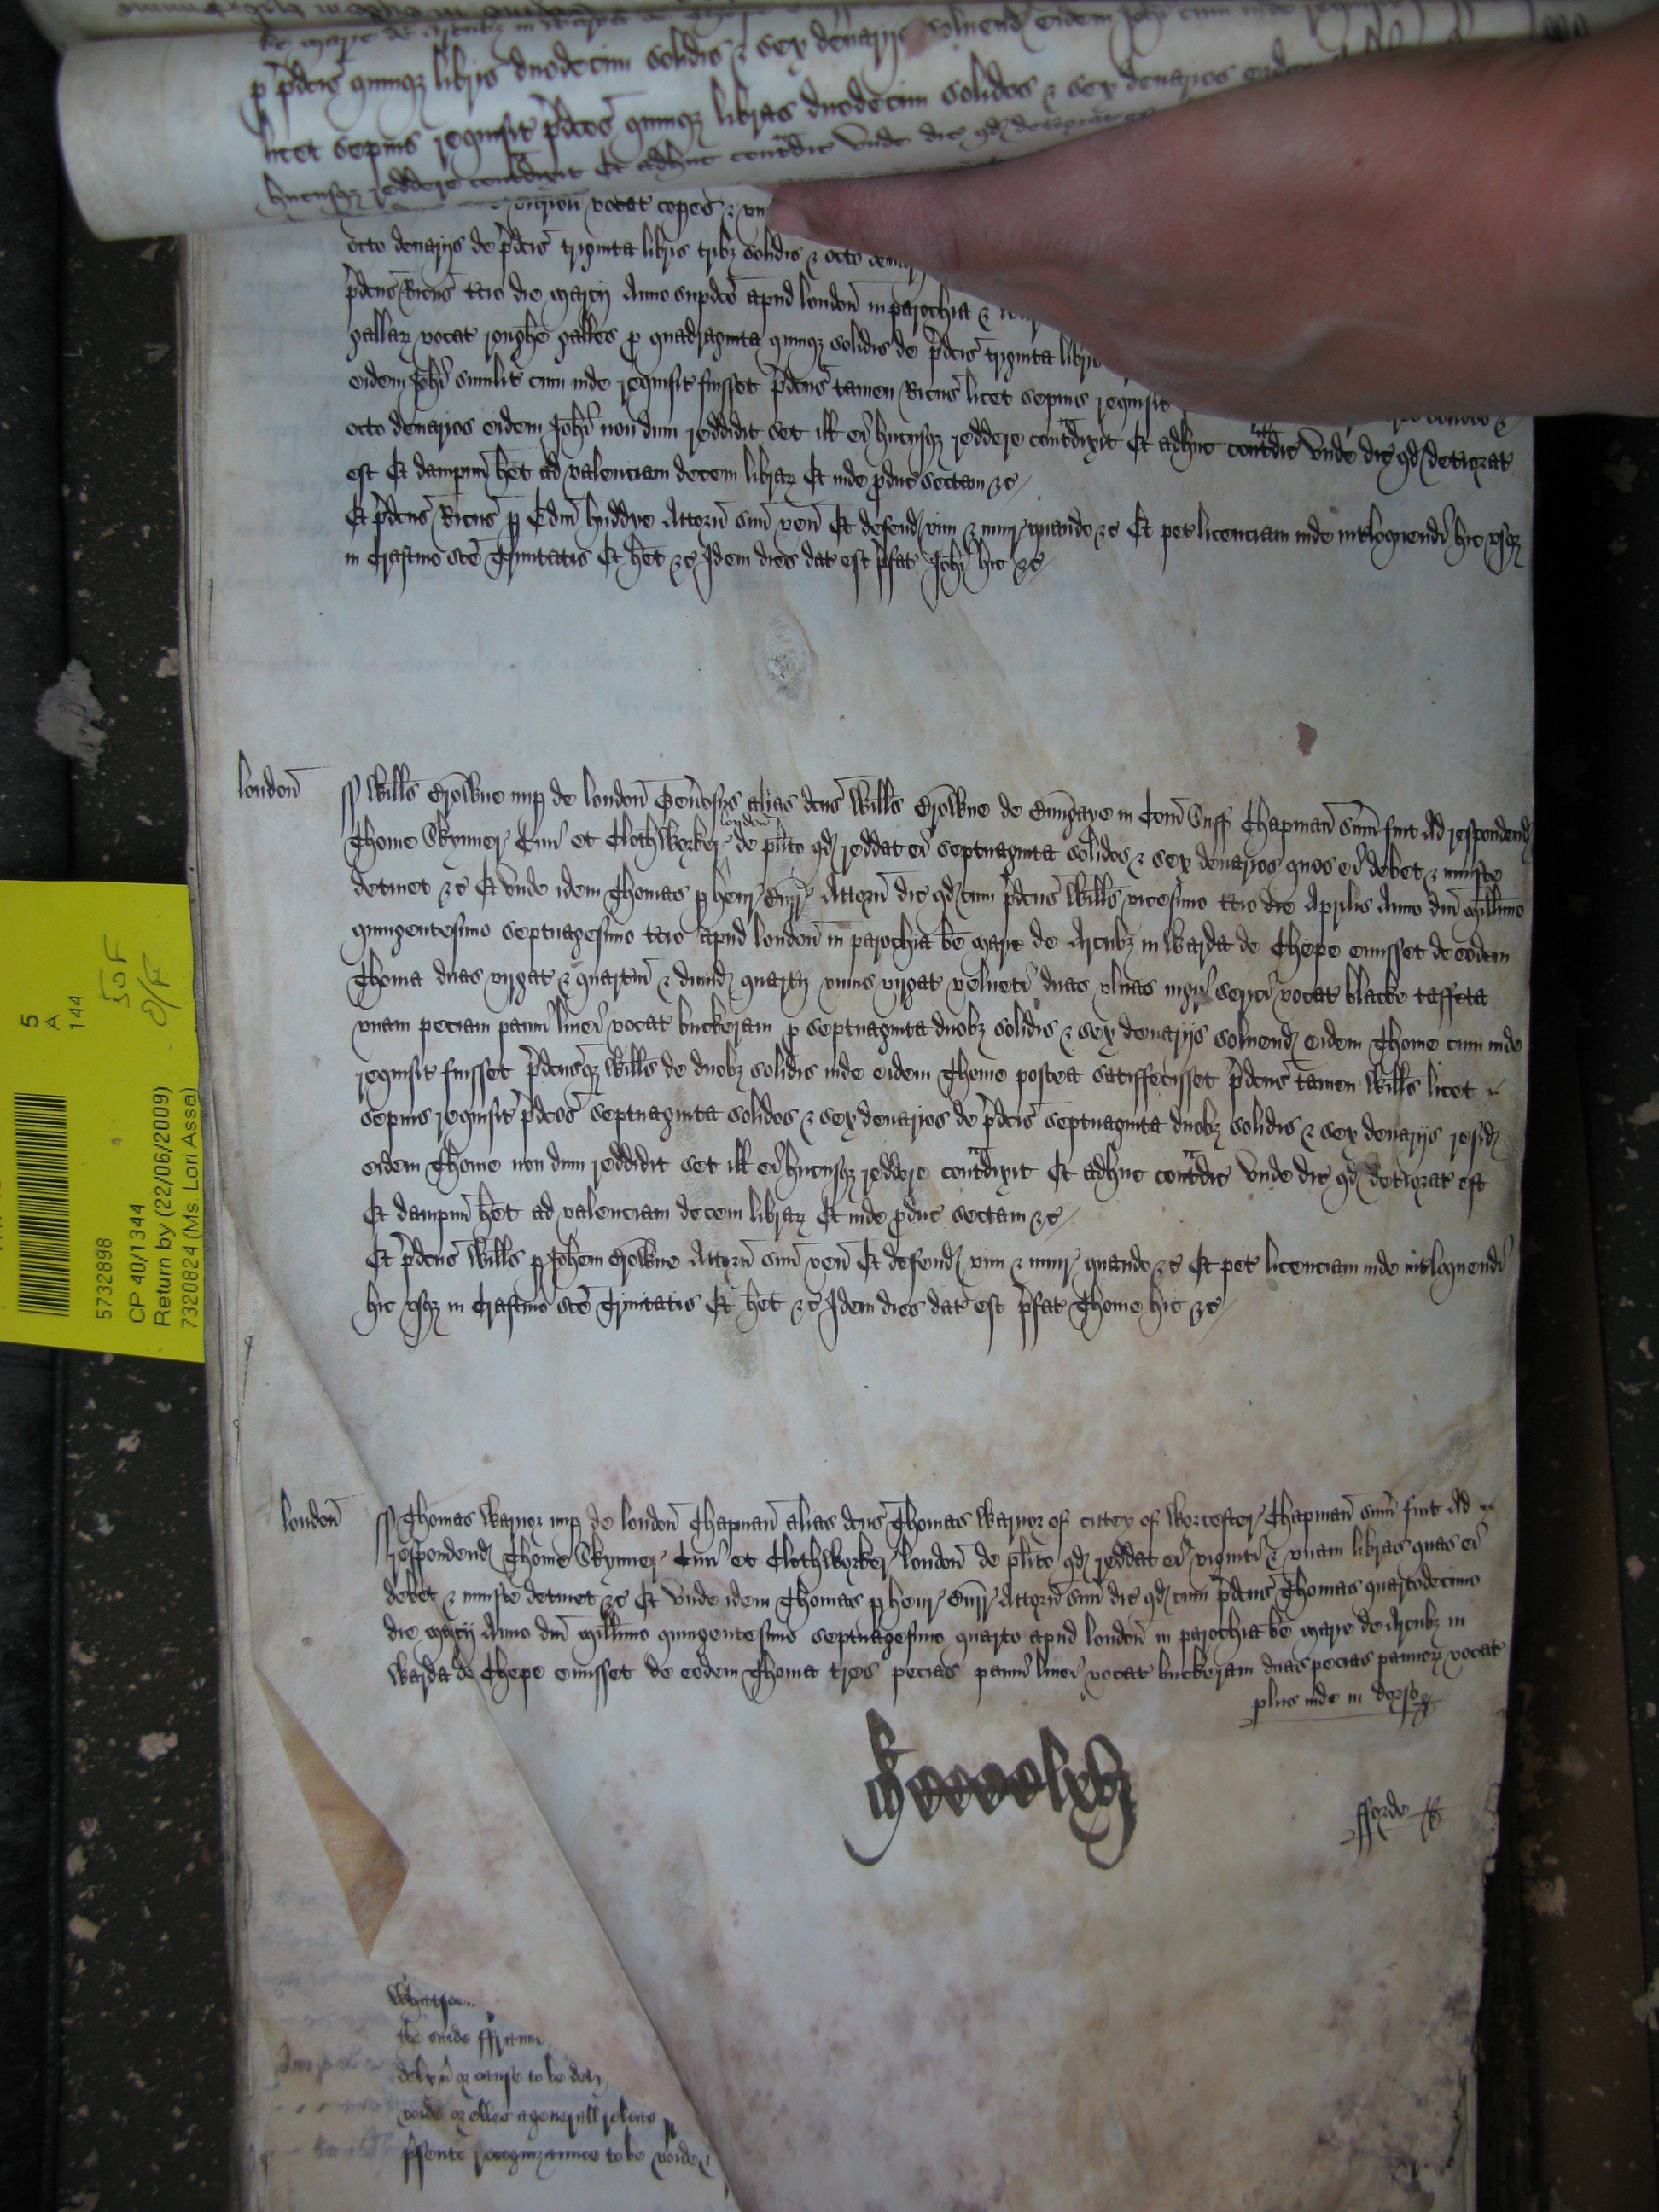 p p'dcis quinq libris duodecim solidis & sex denarijs solvend eidem Johi cum inde requisit
licet sepius requisit p'dcos quinq libras duodecim solidos & sex denarios
hucusq reddere contradixit Et adhuc contradic unde dic qd deteriorat
vocat copes & un
octo denarijs de p'dcis triginta libris trib solidis & octo denar
p'dcus Ricus tcio die Marcij Anno supdco apud london in parochia &
gallar vocat roughe galles p quadraginta quinq solidis de p'dcis triginta libris
eidem Johi similit cum inde requisit fuisset p'dcus tamen Ricus licet sepius requisit
octo denarios eidem Johi non dum reddidit set ill ei hucusq reddere contradixit Et adhuc contradic unde dic qd deteriorat
est Et dampnu het ad valenciam decem librar Et inde produc sectam &c
Et p'dcus Ricus p Edm huddye Attorn suu ven Et defend vim & iniur quando &c Et pet licenciam inde intloquendi hic usq
in Crastino sce Trinitatis Et het &c Idem dies dat est p'fat Johi hic &c
london
Willms Browne nup de london Generosus alias dcus Willms Browne de Bungaye in Com Suff Chapman sum fuit Ad respondend
Thome Skynner Civi et Clothworker london de plito qd reddat ei septuaginta solidos & sex denarios quos ei debet & iniuste
detinet &c Et unde idem Thomas p henr Attorn dic qd cum p'dcus Willms vicesimo tcio die Aprilis Anno dni millimo
quingentesimo septuagesimo tcio apud london in parochia be Marie de Arcub in Warda de Chepe emisset de eodem
Thoma duas virgat & quartiu & dimid quartij unius virgat velveti duas ulnas nigri serici vocat blacke taffeta
unam peciam panni linei vocat buckeram p septuaginta duob solidis & sex denarijs solvend eidem Thome cum inde
requisit fuisset p'dcusq Willms de duob solidis inde eidem Thome postea satisfecisset p'dcus tamen Willms licet
sepius requisit p'dcos septuaginta solidos & sex denarios de p'dcis septuaginta duob solidis & sex denarijs resid
eidem Thome non dum reddidit set ill ei hucusq reddere contradixit Et adhuc contradic unde dic qd deteriorat est
Et dampnu het ad valenciam decem librar Et inde produc sectam &c
Et p'dcus Willms p Johem Browne Attorn suu ven Et defend vim & iniur quando &c Et pet licenciam inde intloquendi
hic usq in Crastino sce Trinitatis Et het &c Idem dies dat est p'fat Thome hic &c
london
Thomas Warnor nup de london Chapman alias dcus Thomas Warnor of cittey of Worcester Chapman sum fuit Ad
respondend Thome Skynner Civi et Clothworker london de plito qd reddat ei viginti & unam libras quas ei
debet & iniuste detinet &c Et unde idem Thomas p henr Attorn suu dic qd cum p'dcus Thomas quartodecimo
die Marcij Anno dni millimo quingentesimo septuagesimo quarto apud london in parochia be Marie de Arcub in
Warda de Chepe emisset de eodem Thoma tres pecias panni linei vocat buckeram duas pecias pannor vocat
plus inde in dorso
fforde
the saide
or cause to be
voide or elles a generall
p'sente recognizance to be voide
5
A
144
5732898
CP 40/1344
Return by (22/06/2009)
7320824 (Ms. Lori Assa)